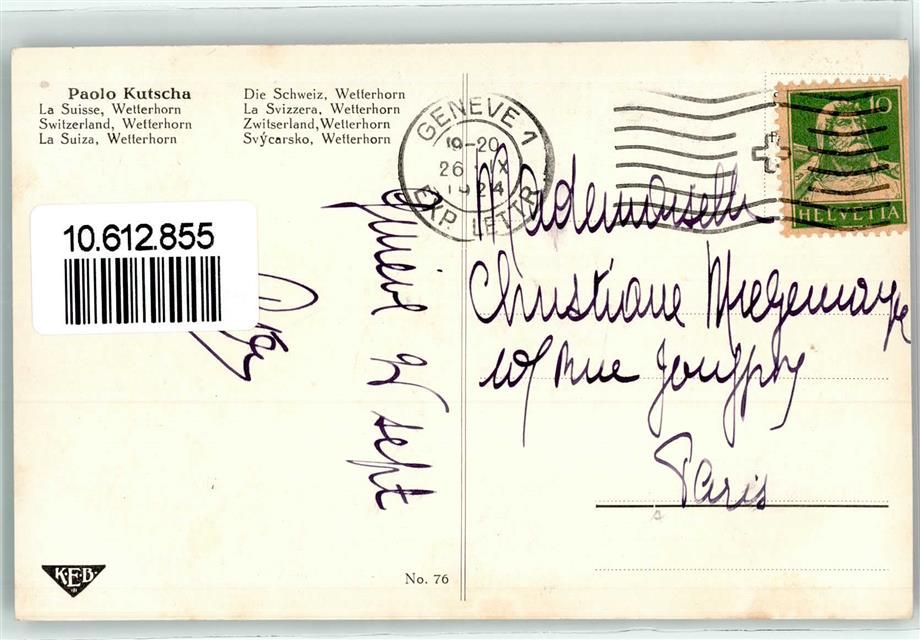 Paolo Kutscha
La Suisse, Wetterhorn
Switzerland, Wetterhorn
La Suiza, Wetterhorn
Die Schweiz, Wetterhorn
La Svizzera, Wetterhorn
Zwitserland, Wetterhorn
Svýcarsko, Wetterhorn
10.612.855
GENÈVE 1
19-20
26 IX
1924
EXP. LETTR
10
HELVETIA
Mademoiselle
Christiane
rue Jouffroy
Paris
sept
K.E.B.
No. 76